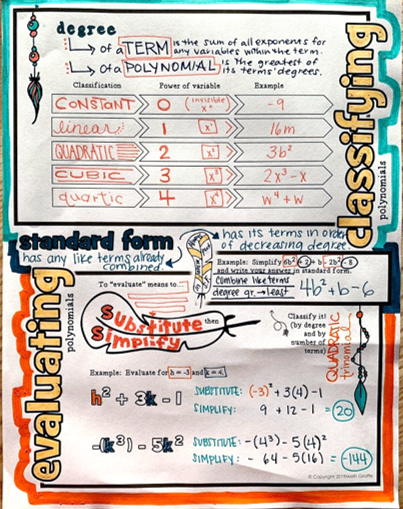 degree
of a TERM is the sum of all exponents for
any variables within the term.
of a POLYNOMIAL is the greatest of
its terms' degrees.
Classification Power of variable Example
CONSTANT 0 (invisible x⁰) -9
linear 1 x¹ 16m
QUADRATIC 2 x² 3b²
CUBIC 3 x³ 2x³-x
quartic 4 x⁴ w⁴+w
classifying
polynomials
standard form
has any like terms already
combined.
has its terms in order
of decreasing degree
Example: Simplify 6b² + 2 + b - 2b² - 8
and write your answer in standard form.
Combine like terms
degree gr. → least
4b² + b - 6
evaluating
polynomials
To "evaluate" means to...
Substitute then
Simplify
Classify it!
(by degree
and by
number of
terms)
QUADRATIC
trinomial
Example: Evaluate for h = -3 and k = 4.
h² + 3k - 1
SUBSTITUTE: (-3)² + 3(4) - 1
SIMPLIFY: 9 + 12 - 1 = 20
-(k³) - 5k²
SUBSTITUTE: -(4³) - 5(4)²
SIMPLIFY: - 64 - 5(16) = -144
© Copyright 2019 Math Giraffe